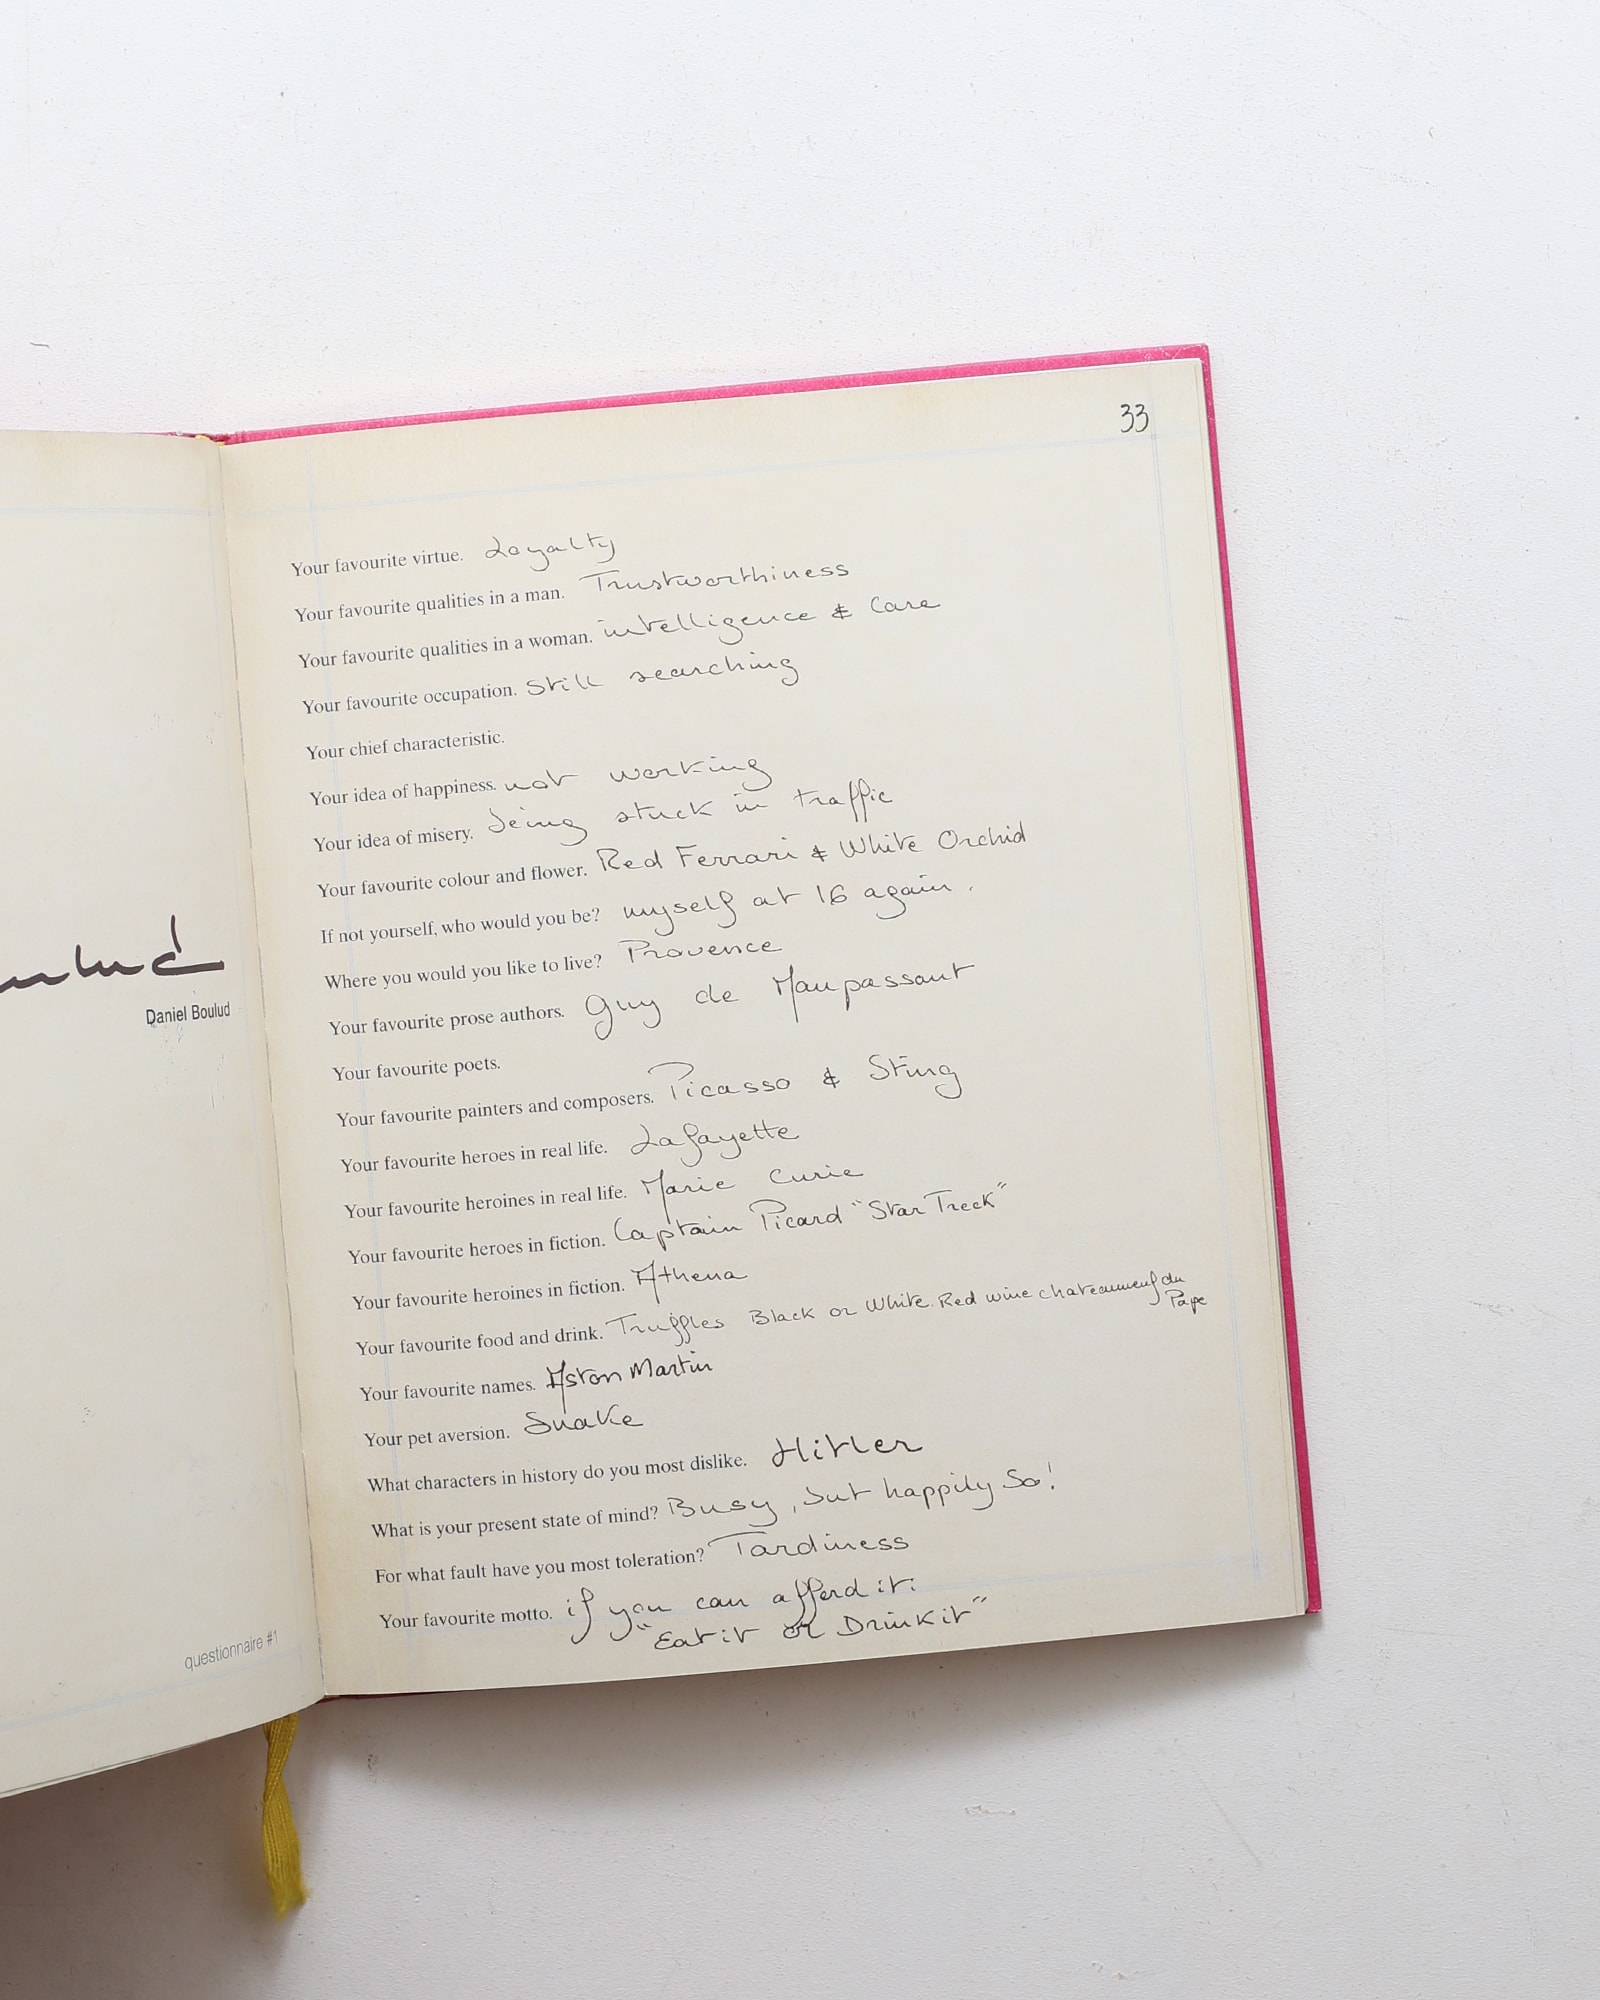 Daniel Boulud
questionnaire #1
33
Your favourite virtue. Loyalty
Your favourite qualities in a man. Trustworthiness
Your favourite qualities in a woman. intelligence & Care
Your favourite occupation. Still searching
Your chief characteristic.
Your idea of happiness. not working
Your idea of misery. being stuck in traffic
Your favourite colour and flower. Red Ferrari & White Orchid
If not yourself, who would you be? myself at 16 again.
Where you would you like to live? Provence
Your favourite prose authors. Guy de Maupassant
Your favourite poets.
Your favourite painters and composers. Picasso & Sting
Your favourite heroes in real life. Lafayette
Your favourite heroines in real life. Marie Curie
Your favourite heroes in fiction. Captain Picard "Star Treck"
Your favourite heroines in fiction. Athena
Your favourite food and drink. Truffles Black or White. Red wine chateauneuf du
Pape
Your favourite names. Aston Martin
Your pet aversion. Snake
What characters in history do you most dislike. Hitler
What is your present state of mind? Busy, but happily So!
For what fault have you most toleration? Tardiness
Your favourite motto. if you can afford it:
"Eat it or Drink it"